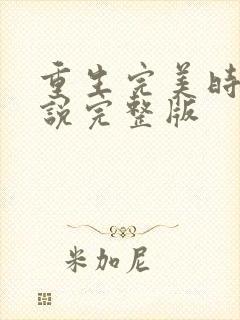 重生完美時
說完整版
米加尼